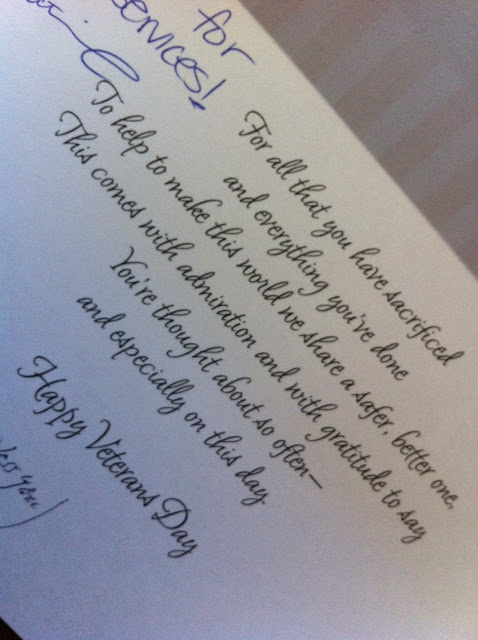 for
services!
For all that you have sacrificed
and everything you've done
To help to make this world we share a safer, better one,
This comes with admiration and with gratitude to say
You're thought about so often—
and especially on this day
Happy Veterans Day
you)